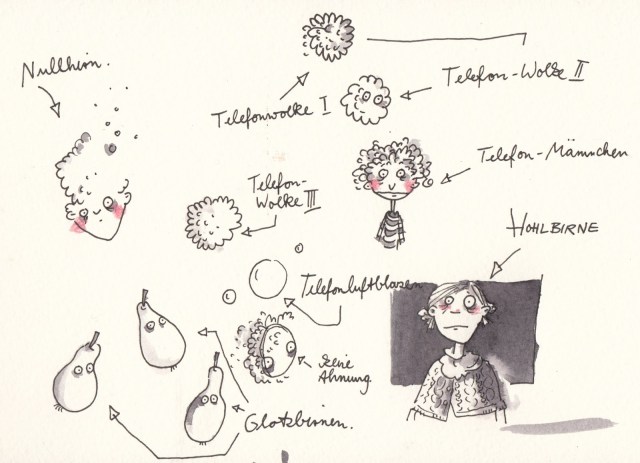 Nullhirn.
Telefonwolke I
Telefon-Wolke II
Telefon-Männchen
Telefon-
Wolke III
HOHLBIRNE
Telefonluftblasen
Keine
Ahnung
Glotzbirnen.